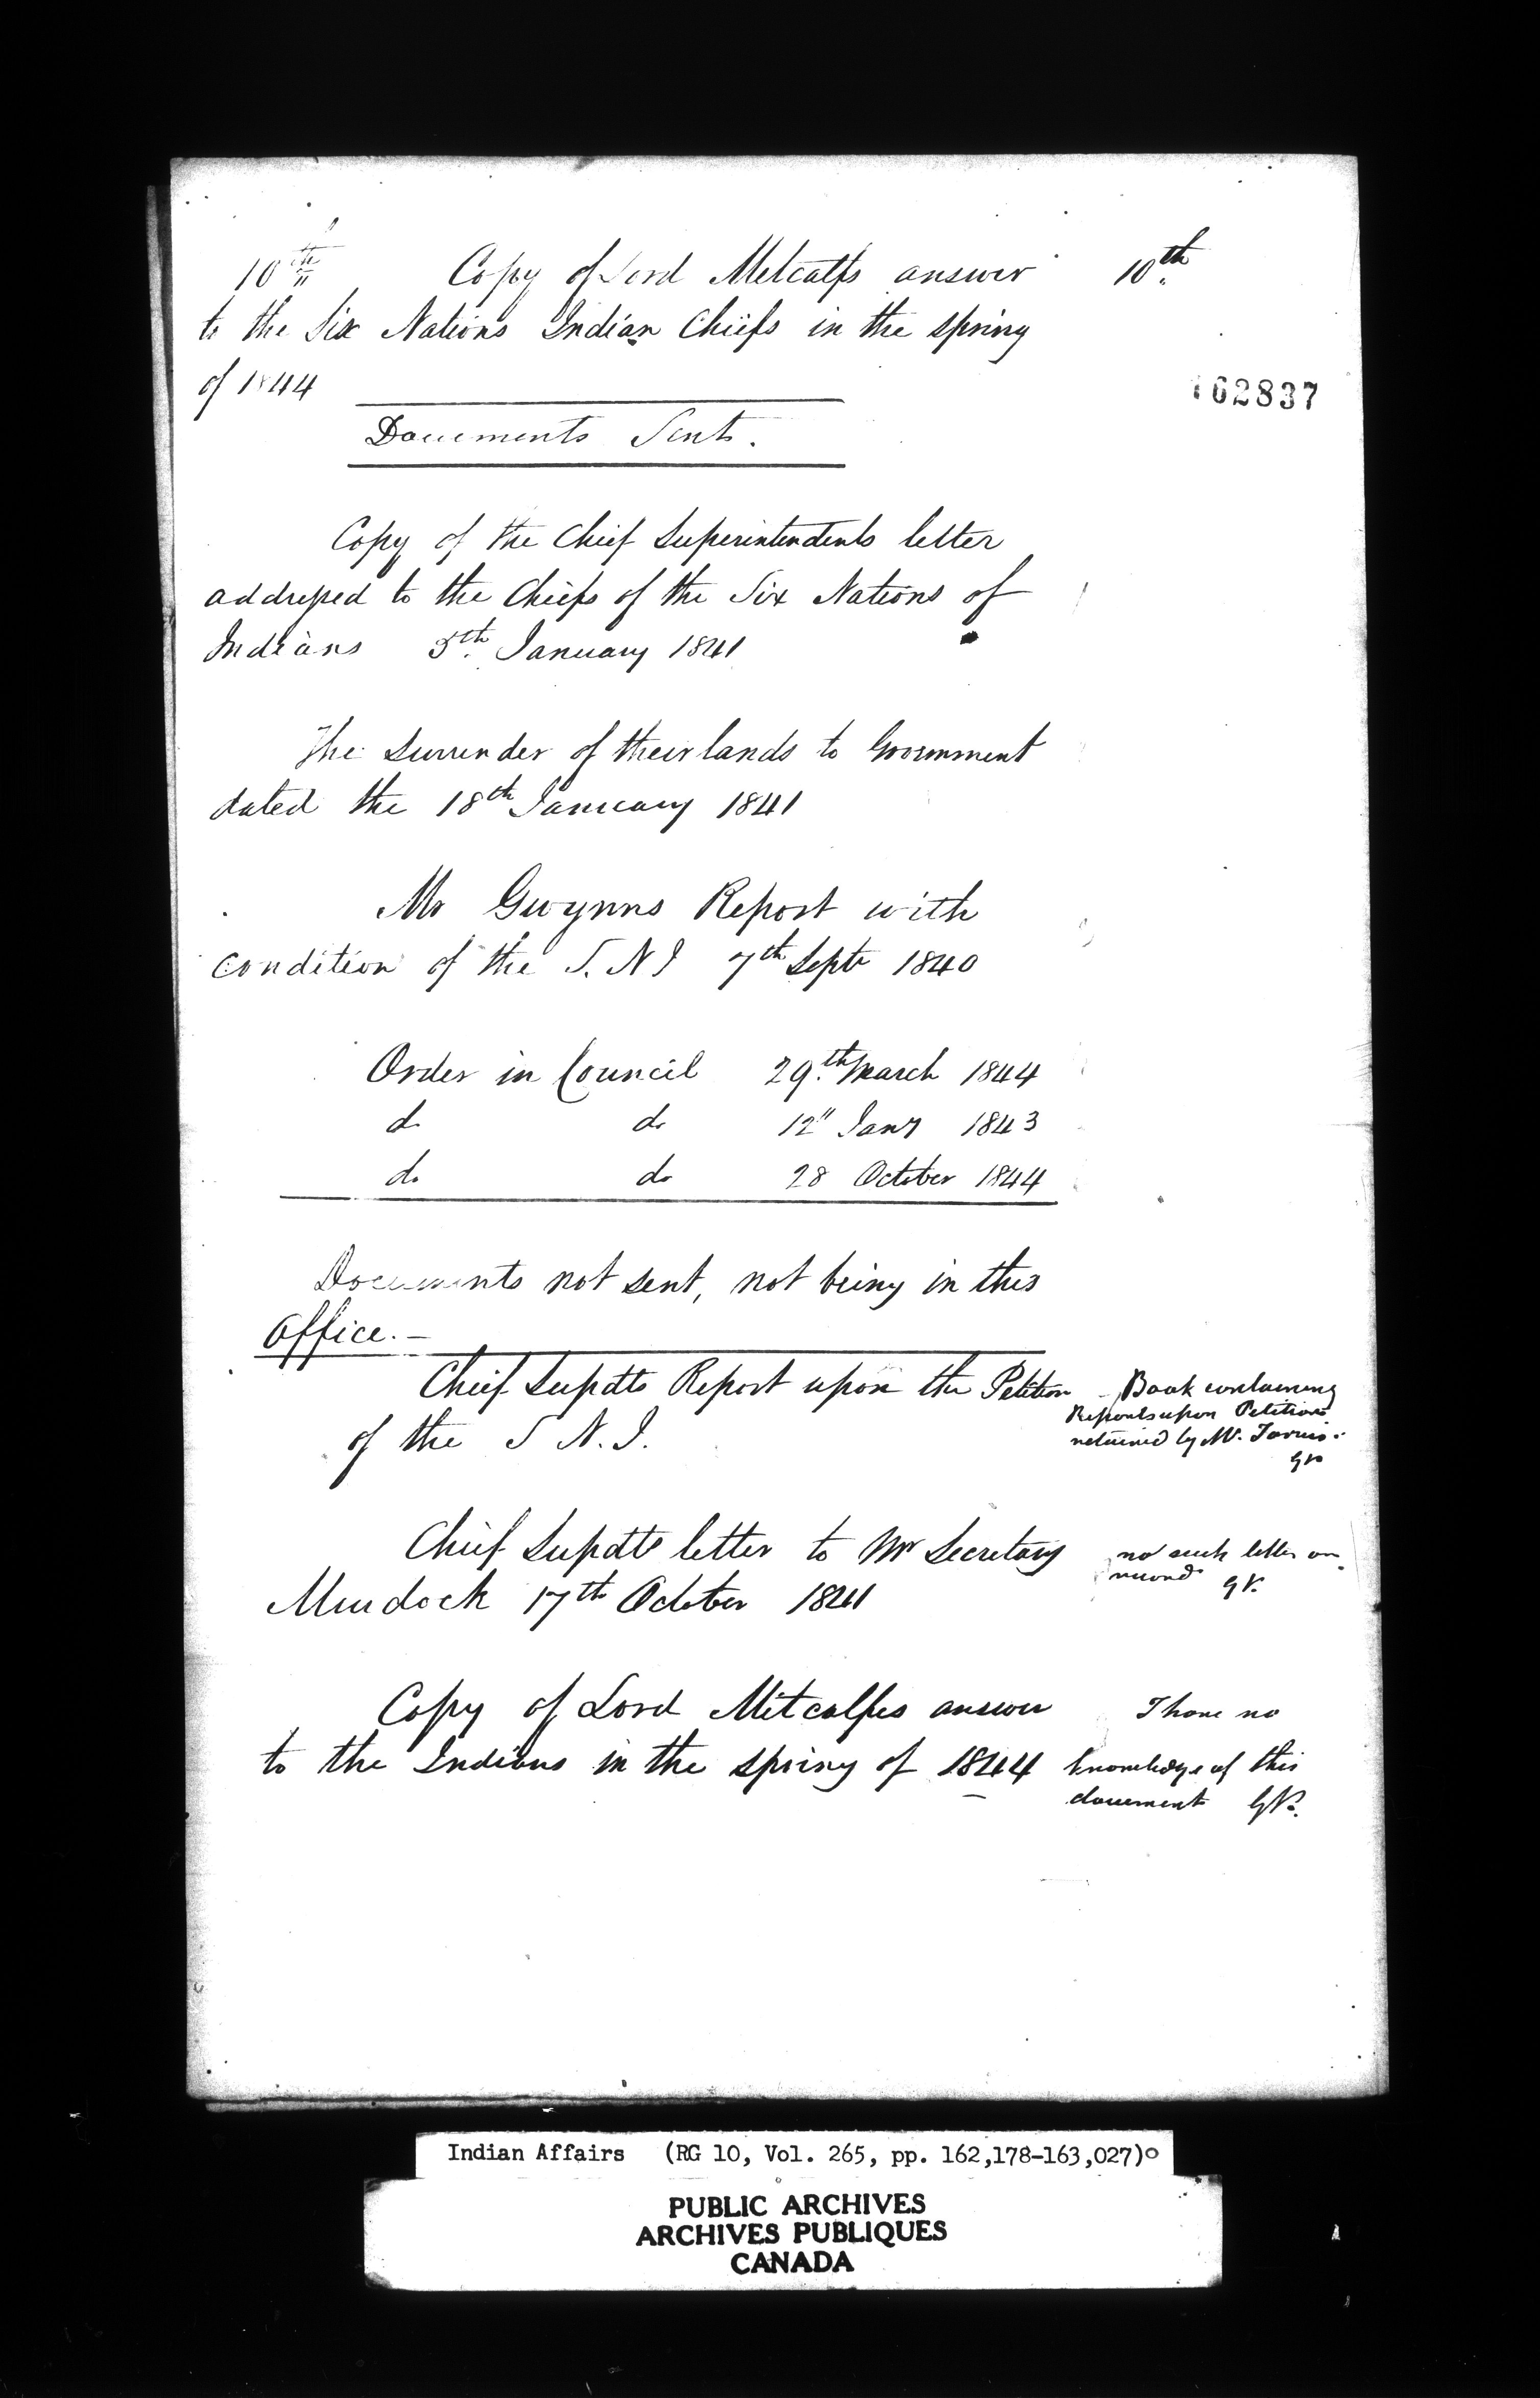 10th Copy of Lord Metcalfs answer 10th
to the Six Nations Indian Chiefs in the spring
of 1844
162837
Documents Sent.
Copy of the Chief Superintendents letter
addressed to the Chiefs of the Six Nations of
Indians 5th January 1841
The Surrender of their lands to Government
dated the 18th January 1841
Mr Gwynns Report with
condition of the S. N I 7th Septr 1840
Order in Council 29th March 1844
do do 12" Jany 1843
do do 28 October 1844
Documents not sent, not being in this
Office. —
Chief Supdts Report upon the Petition
of the S N. I.
Book containing
Reports upon Petitions
retained by Mr. Jarvis.
GV
Chief Supdts letter to Mr Secretary
Murdock 17th October 1841
no such letter on
record GV.
Copy of Lord Metcalfes answer
to the Indians in the spring of 1844
I have no
knowledge of this
document GV.
Indian Affairs (RG 10, Vol. 265, pp. 162,178-163,027)
PUBLIC ARCHIVES
ARCHIVES PUBLIQUES
CANADA